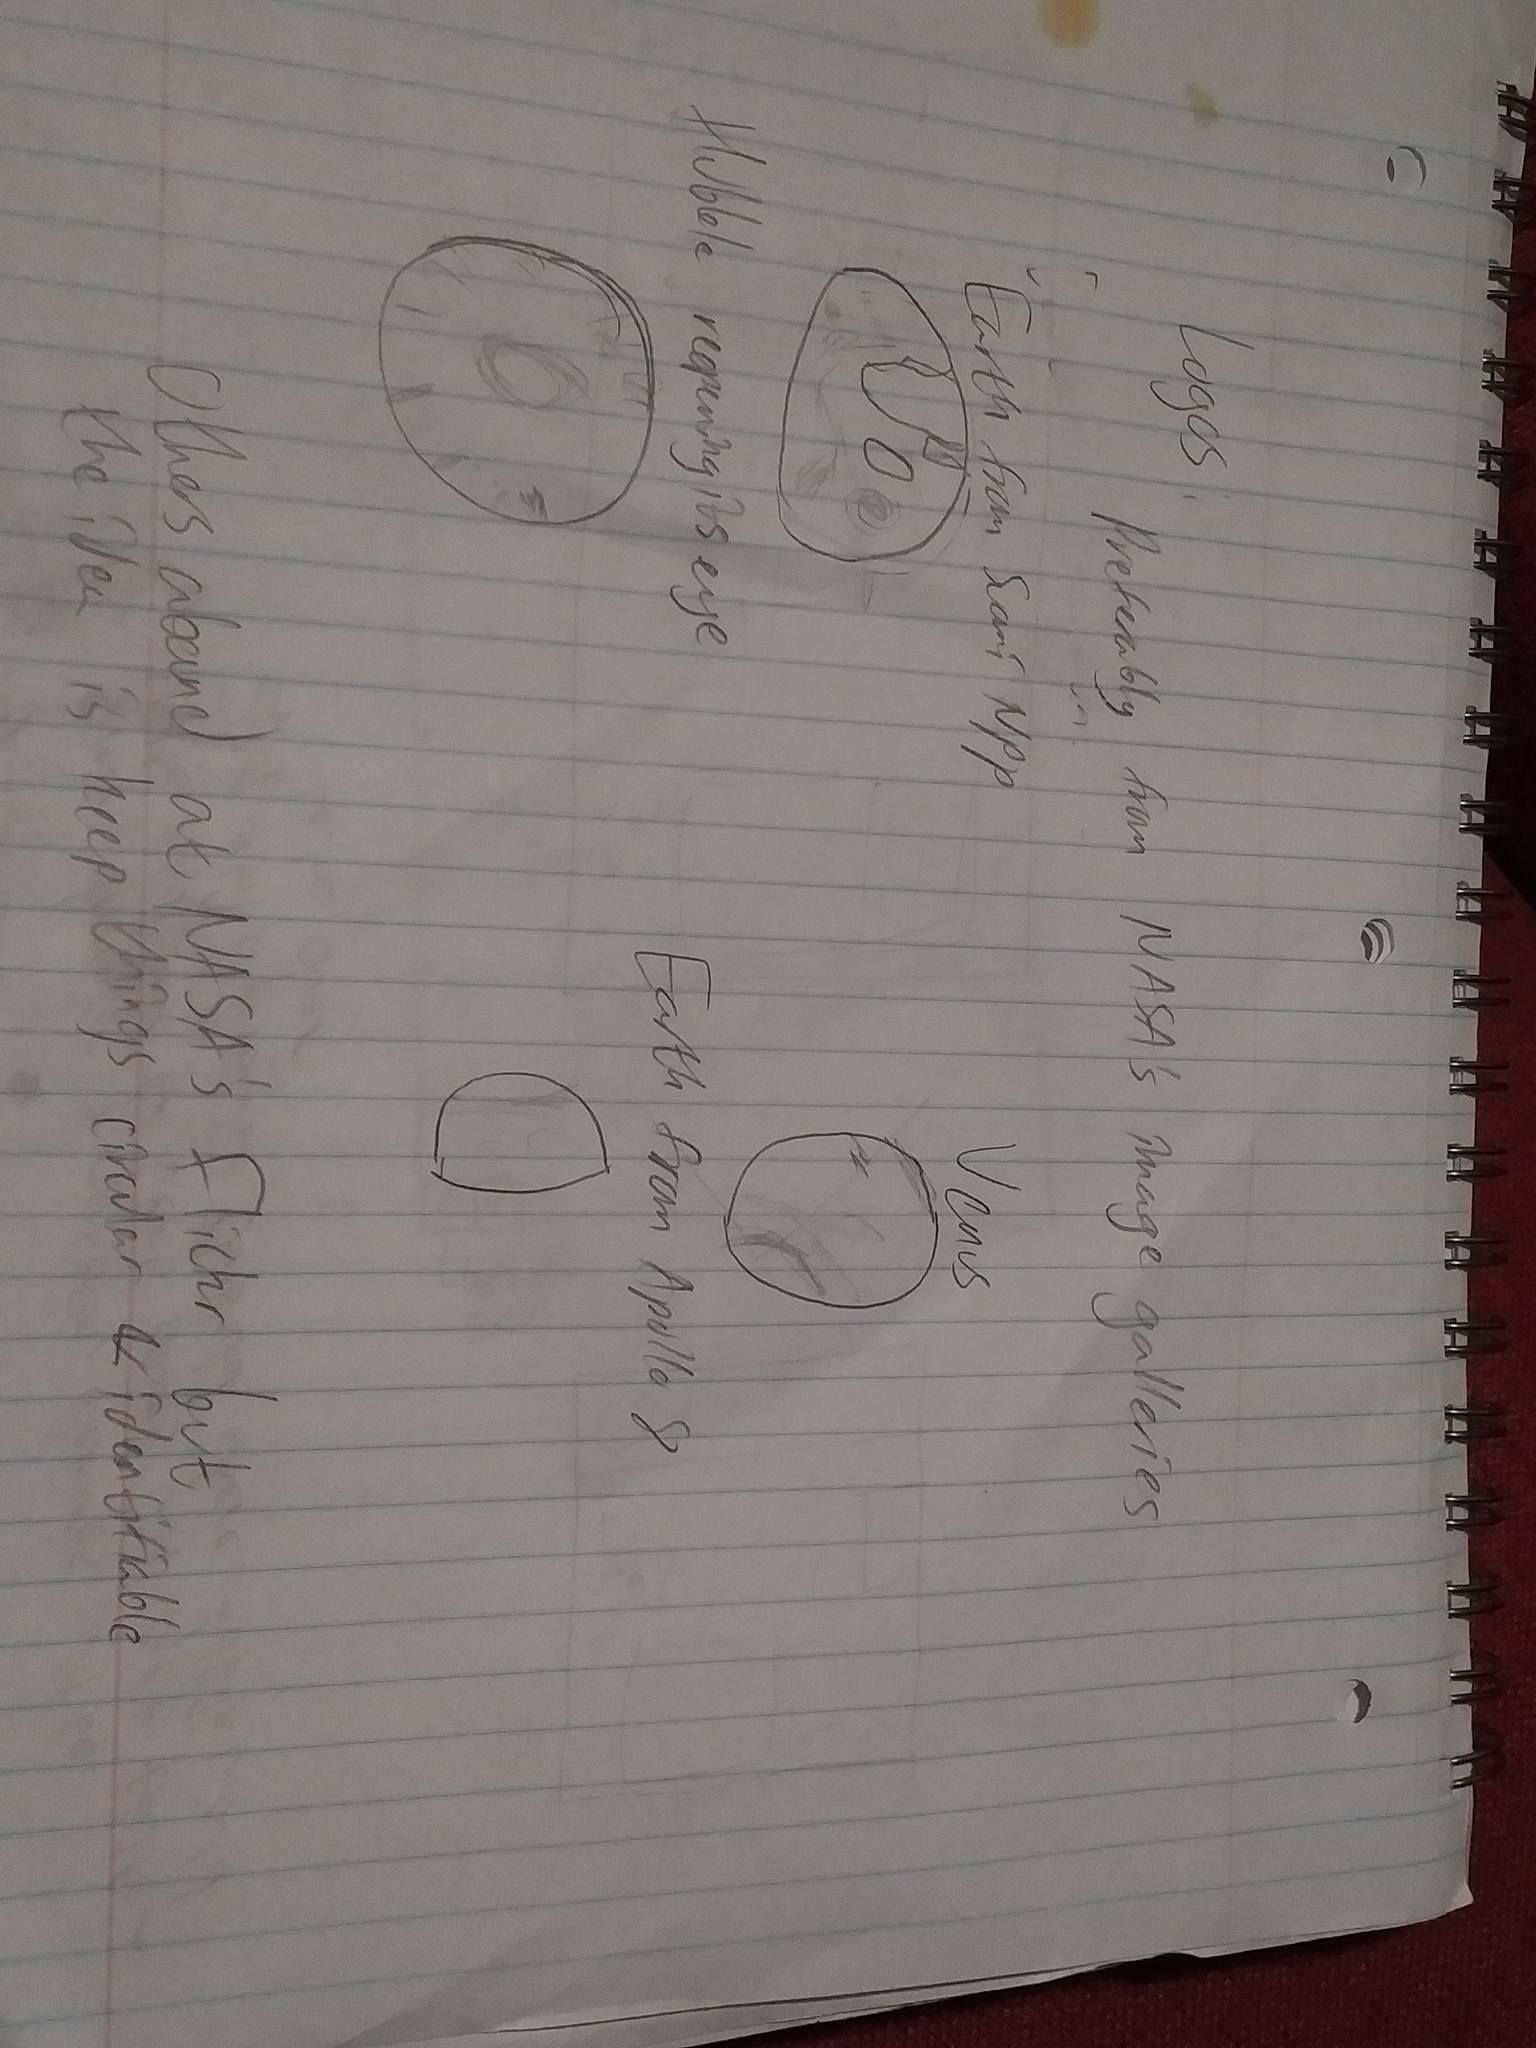 Logos:
Preferably from NASA's image galleries
Earth from Suomi NPP
Venus
Hubble reopening its eye
Earth from Apollo 8
Others abound at NASA's Flickr but
the idea is keep things circular & identifiable